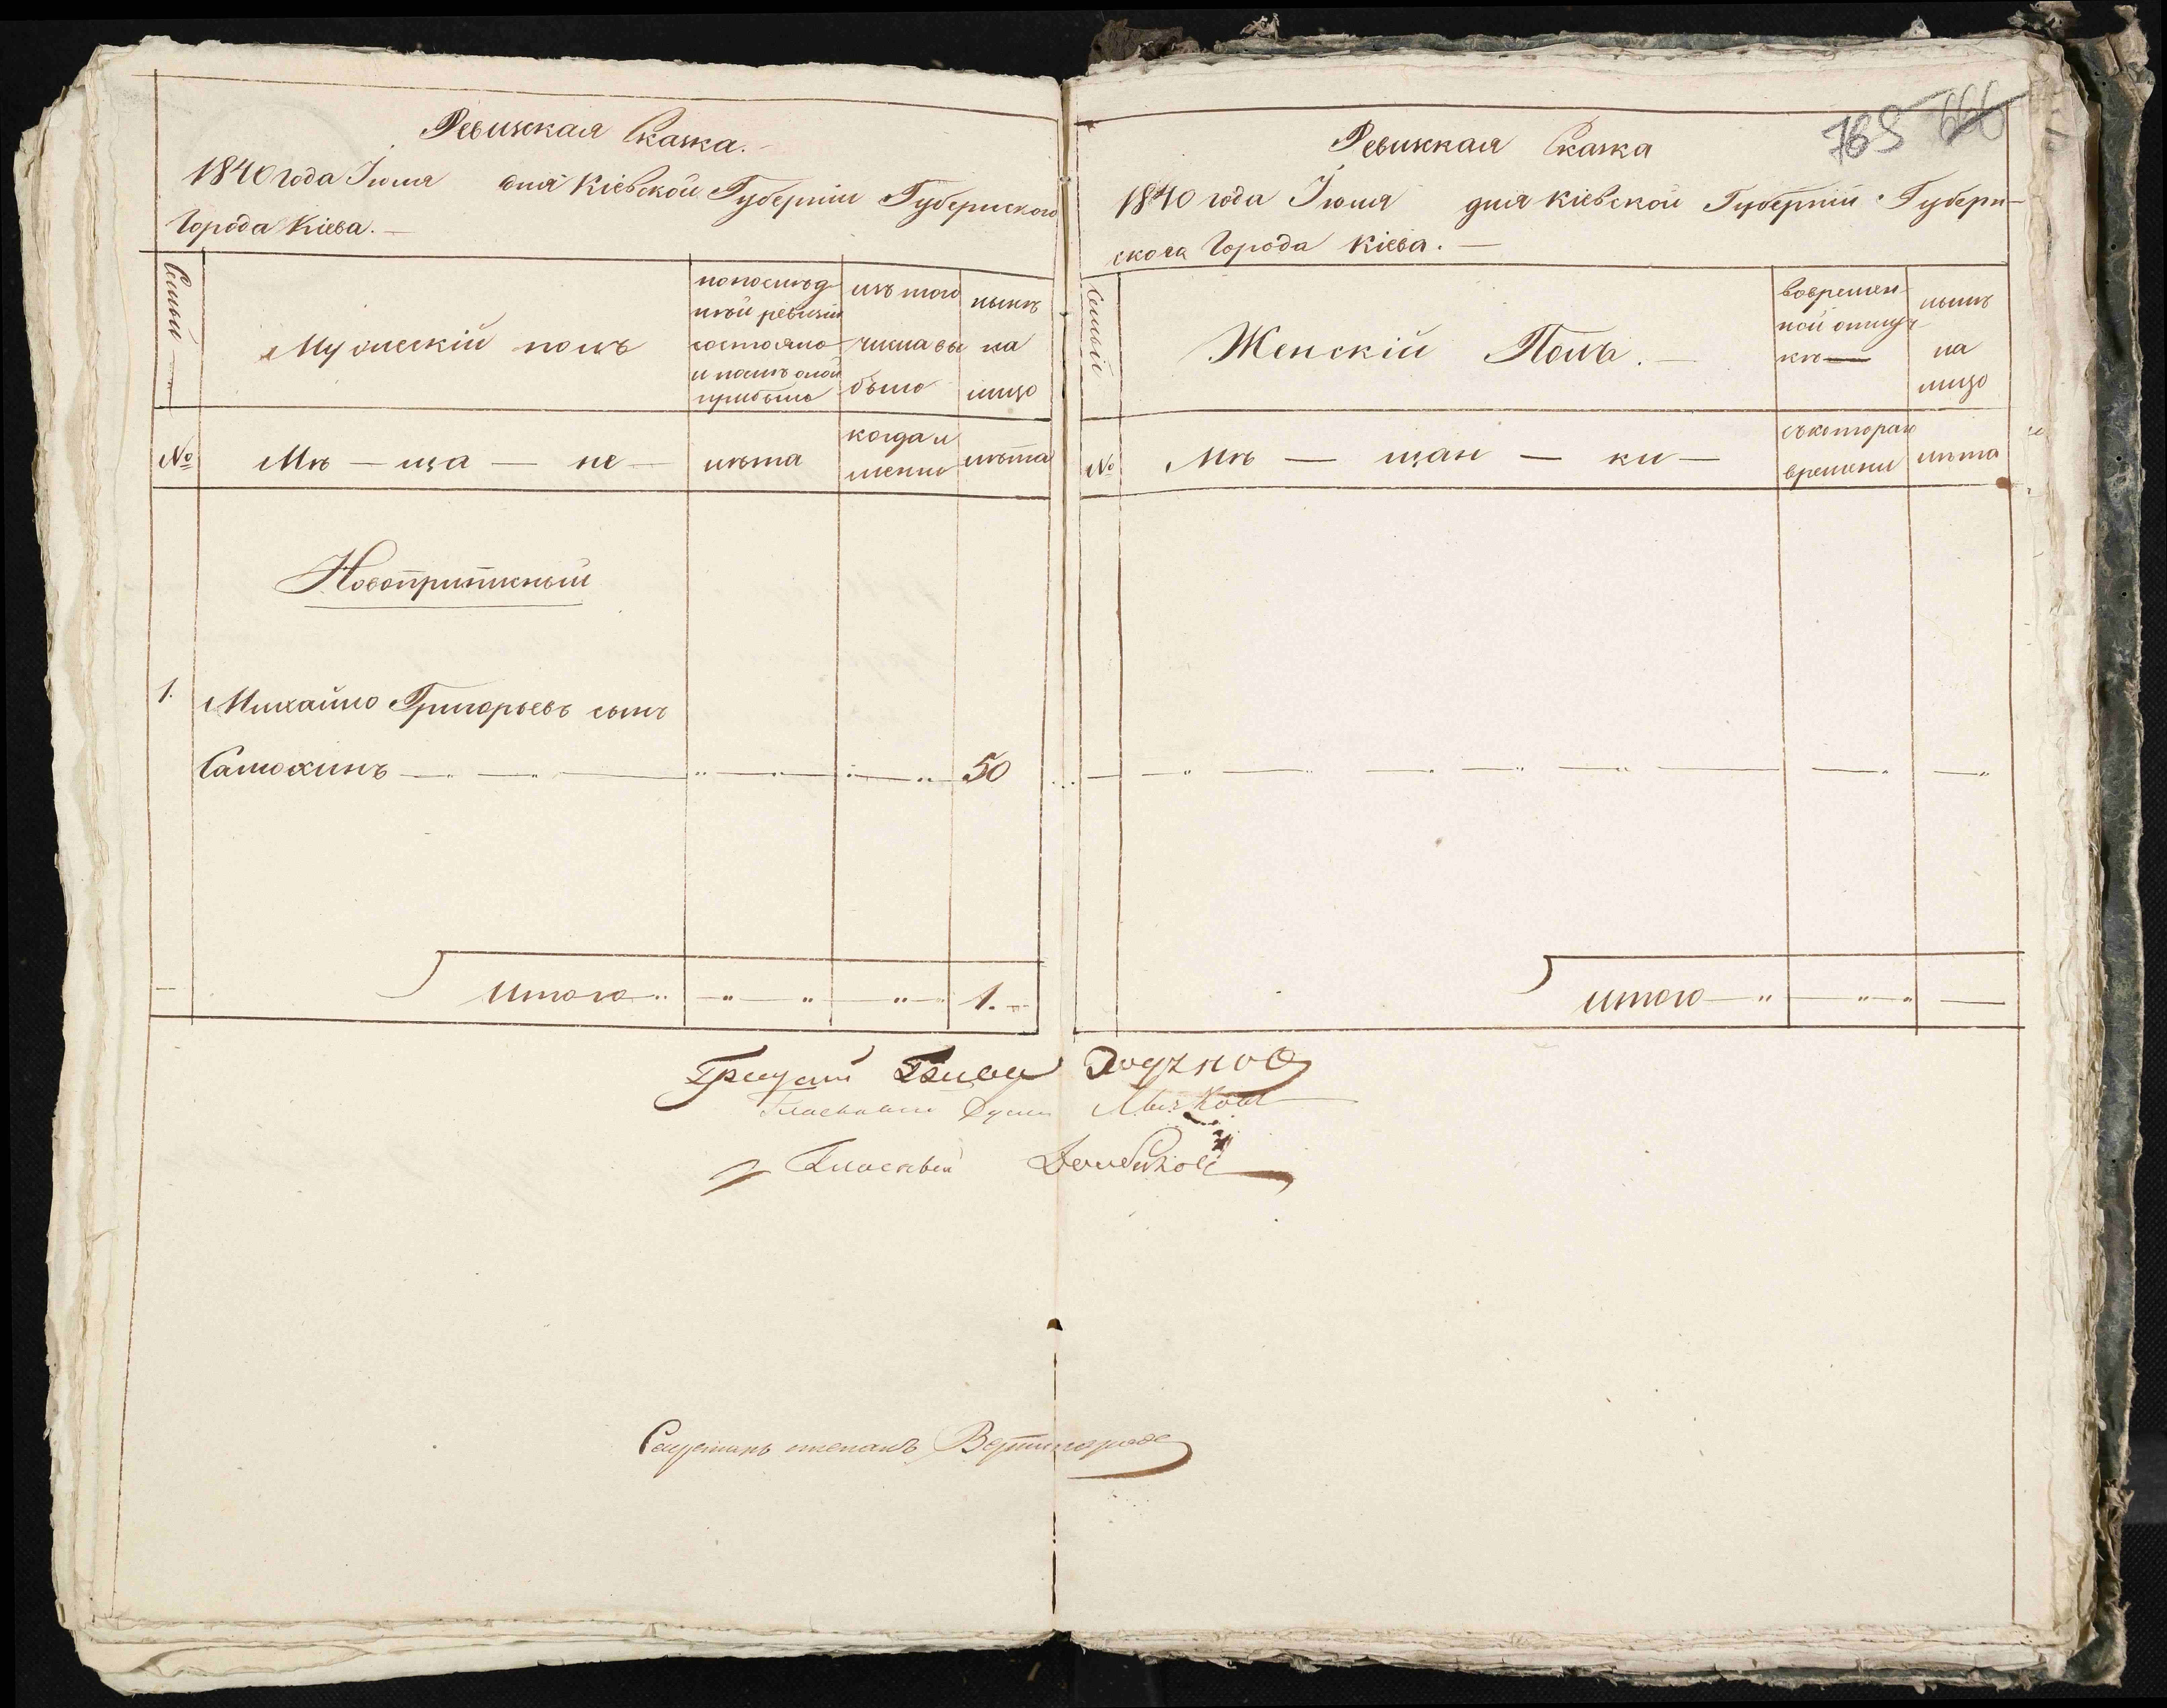 Ревизкая Сказка.
1840 года Іюля дня Кіевской Губерніи Губернского
Города Кіева.
Семьи
Мужескій полъ
по послѣд
нѣй ревизіи
состояло
и послѣ оной
прибыло
изъ того
числа вы
было
нынѣ
на
лицо
№
Мѣ — ща — не —
лѣта
когда и
менно
лѣта
Новоприписный
1. Михайло Григорьевъ сынъ
Самохинъ 50
Итого 1.
765 666
Ревизкая Сказка
1840 года Іюля дня Кіевской Губерніи Губерн-
ского Города Кіева.
Семьи
Женскій Полъ.
во времен-
ной отлуч-
кѣ
нынѣ
на
лицо
№
Мѣ — щан — ки —
съ котораго
времени
лѣта
итого
Гласный Думы
Гласный